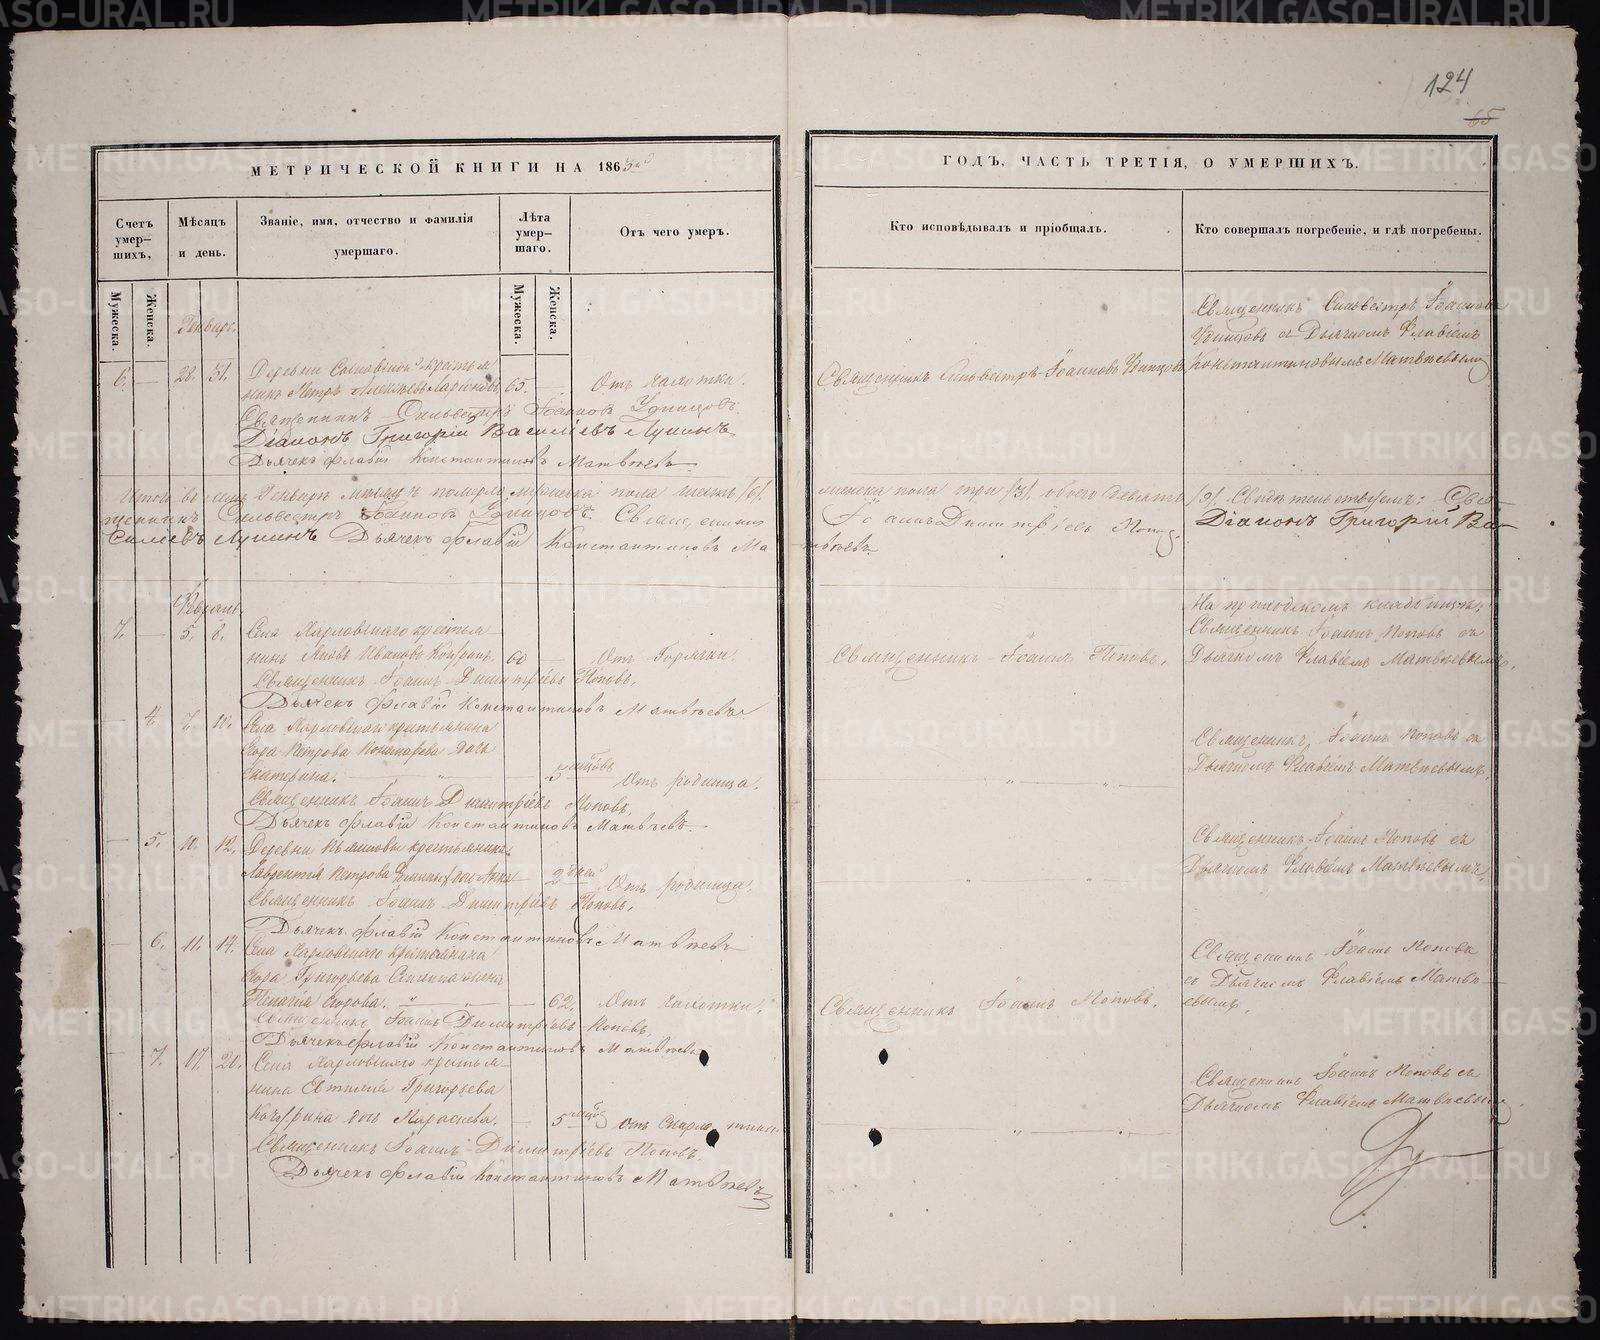 124
65
МЕТРИЧЕСКОЙ КНИГИ НА 1863й
ГОДЪ, ЧАСТЬ ТРЕТІЯ, О УМЕРШИХЪ.
Счетъ умер—шихъ,
Мѣсяцъ и день.
Званіе, имя, отчество и фамилія умершаго.
Лѣта умер—шаго.
Отъ чего умеръ.
Кто исповѣдывалъ и пріобщалъ.
Кто совершалъ погребеніе, и гдѣ погребены.
Мужеска.
Женска.
Мужеска.
Женска.
Генварь.
Священникъ Сильвестръ Іоанновъ
Удинцовъ съ Дьячкомъ Флавіемъ
Константиновымъ Матвѣевымъ
6. — 28. 31. Деревни крестья
нинъ Петръ Алексѣевъ Ларіоновъ 65. — Отъ чахотки.
Священникъ Сильвестръ Іоанновъ Удинцовъ
Священникъ Сильвестръ Іоанновъ Удинцовъ.
Діаконъ Григорій Василіевъ Лукинъ
Дьячекъ Флавій Константиновъ Матвѣевъ
Итого въ Генварѣ мѣсяцѣ померло мужеска пола шесть /6/.
женска пола три /3/. обоего девять /9/. Свидѣтельствуемъ: Свя
щенникъ Сильвестръ Іоанновъ Удинцовъ. Священникъ
Іоаннъ Димитріевъ Поповъ. Діаконъ Григорій Ва
силіевъ Лукинъ Дьячекъ Флавій Константиновъ Ма
твѣевъ
Февраль.
На приходскомъ кладбищѣ:
7. — 5. 8. Села Харловскаго крестья
нинъ Яковъ Ивановъ 60 — Отъ Горячки.
Священникъ Іоаннъ Поповъ.
Священникъ Іоаннъ Поповъ съ
Дьячкомъ Флавіемъ Матвѣевымъ.
Священникъ Іоаннъ Димитріевъ Поповъ.
Дьячекъ Флавій Константиновъ Матвѣевъ
— 4. 7. 10. Села Харловскаго крестьянина
Петрова Пономарева дочь
Екатерина. — " — 5 мѣцовъ Отъ родимца.
Священникъ Іоаннъ Поповъ съ
Дьячкомъ Флавіемъ Матвѣевымъ.
Священникъ Іоаннъ Димитріевъ Поповъ.
Дьячекъ Флавій Константиновъ Матвѣевъ.
— 5. 10. 12. Деревни крестьянина
Лаврентія Петрова дочь Анна 2 дней Отъ родимца.
Священникъ Іоаннъ Поповъ съ
Дьячкомъ Флавіемъ Матвѣевымъ.
Священникъ Іоаннъ Димитріевъ Поповъ.
Дьячекъ Флавій Константиновъ Матвѣевъ
— 6. 11. 14. Села Харловскаго крестьянина
Григорьева жена
Пелагія — " — 62. Отъ чахотки.
Священникъ Іоаннъ Поповъ.
Священникъ Іоаннъ Поповъ
съ Дьячкомъ Флавіемъ Матвѣ—
евымъ.
Священникъ Іоаннъ Димитріевъ Поповъ.
Дьячекъ Флавій Константиновъ Матвѣевъ
— 7. 17. 20. Села Харловскаго крестья
нина Григорьева
дочь Параскева. — 5 мѣцъ Отъ
Священникъ Іоаннъ Поповъ съ
Дьячкомъ Флавіемъ Матвѣевымъ.
Священникъ Іоаннъ Димитріевъ Поповъ.
Дьячекъ Флавій Константиновъ Матвѣевъ
METRIKI.GASO-URAL.RU